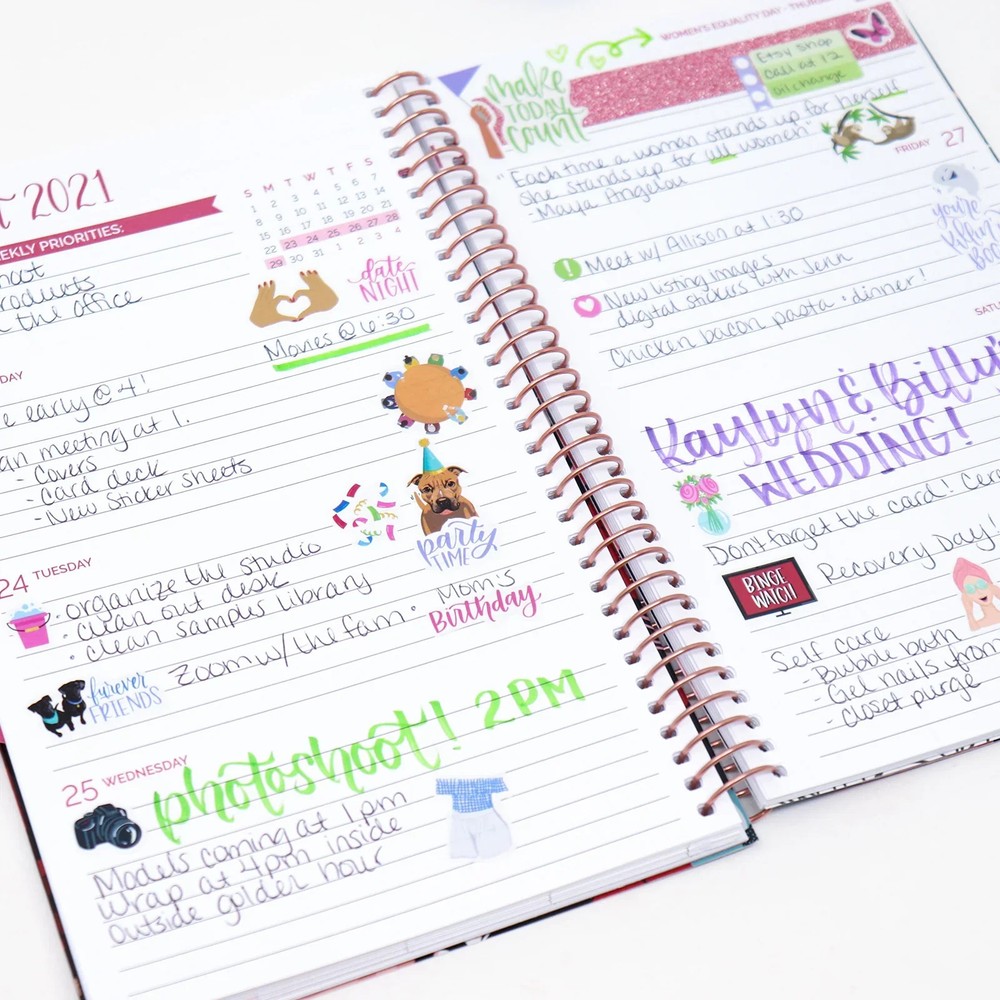 2021
WEEKLY PRIORITIES:
the office
S M T W T F S
1 2 3 4 5 6 7
8 9 10 11 12 13 14
15 16 17 18 19 20 21
22 23 24 25 26 27 28
29 30 31 1 2 3 4
date
NIGHT
Movies @ 6:30
early @ 4!
meeting at 1.
- Covers
- Card deck
- New Sticker sheets
party
TIME
24 TUESDAY
• organize the studio
• clean out desk
• clean sampus library
Mom's
Birthday
Zoom w/ the fam •
furever
FRIENDS
25 WEDNESDAY
photoshoot! 2PM
Models coming at 1pm
Wrap at 4pm inside
Outside golder hour
WOMEN'S EQUALITY DAY
make
TODAY
count
Etsy shop
call at 12
oil change
"Each time a woman stands up for herself
she stands up for all women"
- Maya Angelou
FRIDAY 27
you're
Meet w/ Allison at 1:30
New listing images
digital stickers with Jenn
Chicken bacon pasta • dinner!
Kaylyn &
WEDDING!
Don't forget the card!
BINGE
WATCH
Recovery Day!
Self care
- Bubble bath
- Gel nails from
- Closet purge